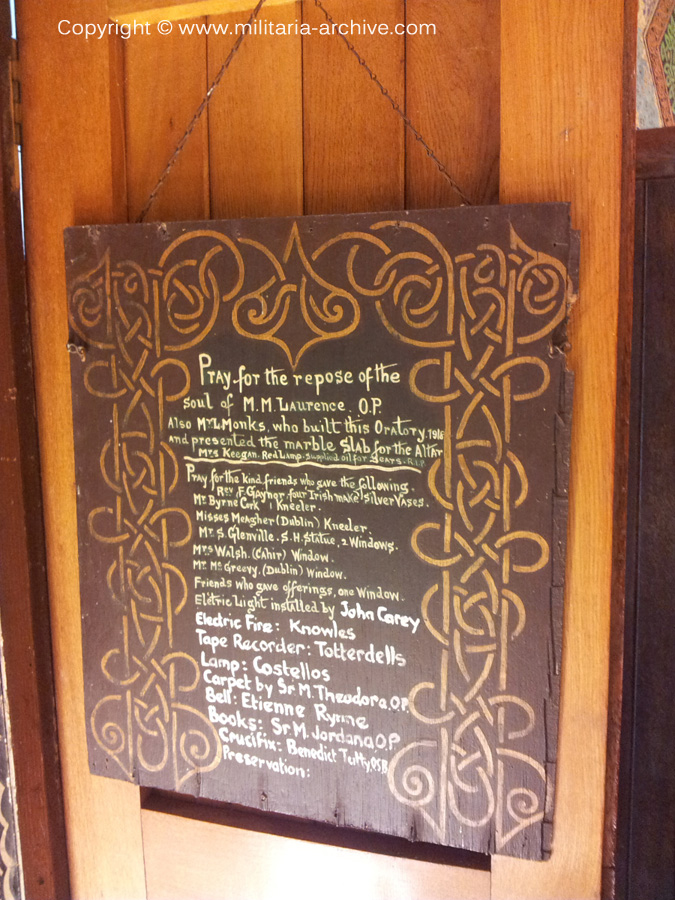 Copyright © www.militaria-archive.com
Pray for the repose of the
soul of M.M. Laurence. O.P.
Also Mr L Monks, who built this Oratory. 1916
and presented the marble slab for the Altar
Mrs Keegan. Red Lamp. supplied oil for years. R.I.P.
Pray for the kind friends who gave the following.
Rev. F. Gaynor, four "Irish make" Silver Vases.
Mr Byrne Cork 1 Kneeler.
Misses Meagher (Dublin) Kneeler.
Mr. S. Glenville. S.H. Statue, 2 Windows.
Mrs Walsh. (Cahir) Window.
Mr. McGreevy. (Dublin) Window.
Friends who gave offerings, one Window.
Eletric Light installed by John Carey
Electric Fire: Knowles
Tape Recorder: Totterdells
Lamp: Costellos
Carpet by Sr M. Theodora O.P.
Bell: Etienne Rynne
Books: Sr. M. Jordana O.P.
Crucifix: Benedict Tutty, OSB
Preservation: